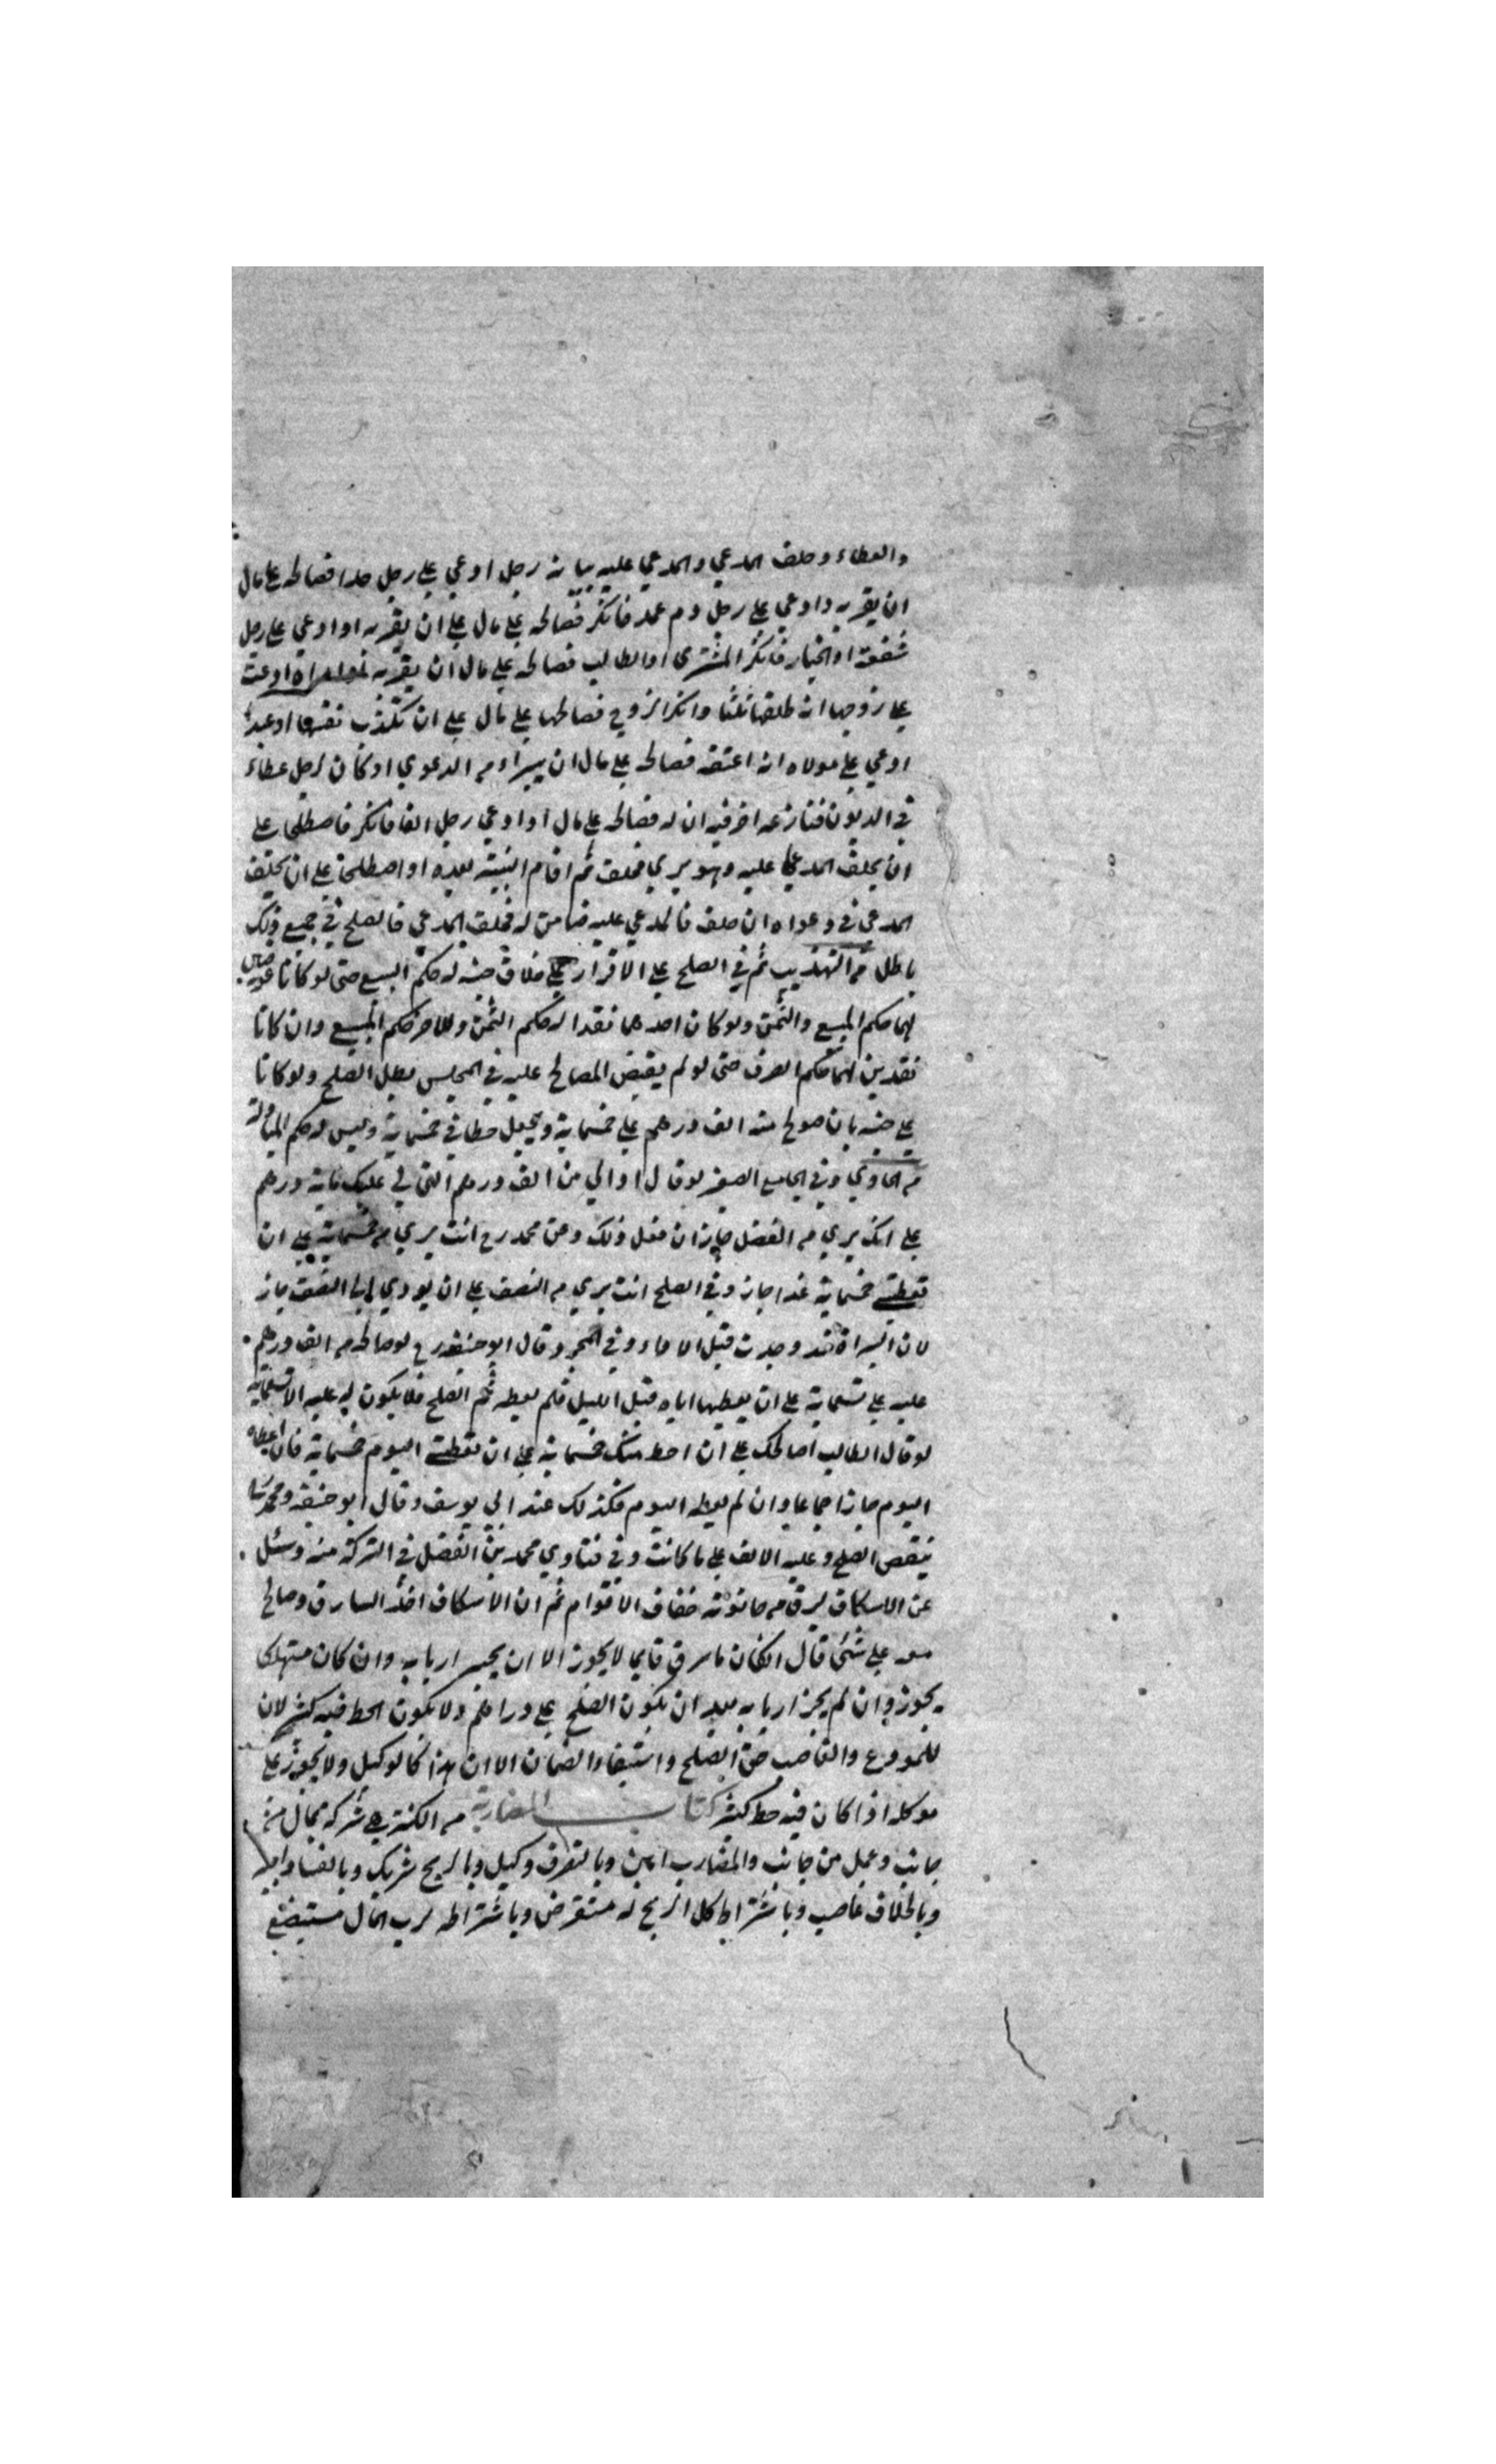 والعطاء وحلف المدعي والمدعي عليه بيانه رجل ادعي علي رجل حدا فصالحه علي مال
ان يقر به وادعي علي رجل دم عمد فانكر فصالحه علي مال علي ان يقر به او ادعي علي رجل
شفعة او الخيار فانكر المشتري او الطالب فصالحه علي مال ان يقر به امراة ادعت
علي زوجها انه طلقها ثلثا وانكر الزوج فصالحها علي مال علي ان تكذب نفسها او عبدا
ادعي علي مولاه انه اعتقه فصالحه علي مال ان يبراه من الدعوي او كان لرجل عطاء
في الديون فنازعه اخر فيه ان له فصالحه علي مال او ادعي رجل الفا فانكر فاصطلحا علي
ان يحلف المدعي عليه وهو بري فحلف ثم اقام البينة بعده او اصطلحا علي ان يحلف
المدعي في دعواه ان حلف فالمدعي عليه ضامن له فحلف المدعي فالصلح في جميع ذلك
باطل من التهذيب ثم في الصلح علي الاقرار علي خلاف جنسه له حكم البيع حتي لو كانا عوضين
لهما حكم المبيع والثمن ولو كان احدهما نقدا له حكم الثمن وللاخر حكم المبيع وان كانا
نقدين لهما حكم الصرف حتي لو لم يقبض المصالح عليه في المجلس بطل الصلح ولو كانا
علي جنسه بان صولح منه الف درهم علي خمسماية ويجعل حطا في خمسماية وليس له حكم المبادلة
من الحاوي وفي الجامع الصغير لو قال ادالي من الف درهم التي لي عليك ماية درهم
علي انك بري من الفضل جاز ان فعل ذلك وعن محمد رح انت بري من خمسماية علي ان
تعطيني خمسماية غدا جاز وفي الصلح انت بري من النصف علي ان يودي الي النصف جاز
لان البراة قد وجدت قبل الاداء وفي المجرد قال ابو حنيفة رح لو صالحه من الف درهم
عليه علي تسعماية علي ان يعطيها اياه قبل الليل فلم يعطه ثم الصلح فلا يكون له عليه الا تسعماية
لو قال الطالب اصالحك علي ان احط منك خمسماية علي ان تعطيني اليوم خمسماية فان اعطاه
اليوم جاز اجماعا وان لم يعطه اليوم فكذلك عند ابي يوسف وقال ابو حنيفة ومحمد
ينقض الصلح وعليه الالف علي ما كانت وفي فتاوي محمد بن الفضل في التركة منه وسئل
عن الاسكاف سرق من حانوته خفاف الاقوام ثم ان الاسكاف اخذ السارق وصالح
معه علي شئ قال ان كان ما سرق قايما لا يجوز الا ان يجيز اربابه وان كان مستهلكا
يجوز وان لم يجز اربابه بعد ان يكون الصلح علي دراهم ولا يكون الحط فيه كثير لان
للمودع والغاصب حق الصلح واستيفاء الضمان الا ان هذا كالوكيل ولا يجوز علي
موكله اذا كان فيه حط كثير كتاب المضاربة من الكنز هي شركة بمال من
جانب وعمل من جانب والمضارب امين وبالتصرف وكيل وبالربح شريك وبالفساد اجير
وبالخلاف غاصب وباشتراط كل الربح له مستقرض وباشتراطه لرب المال مستبضع